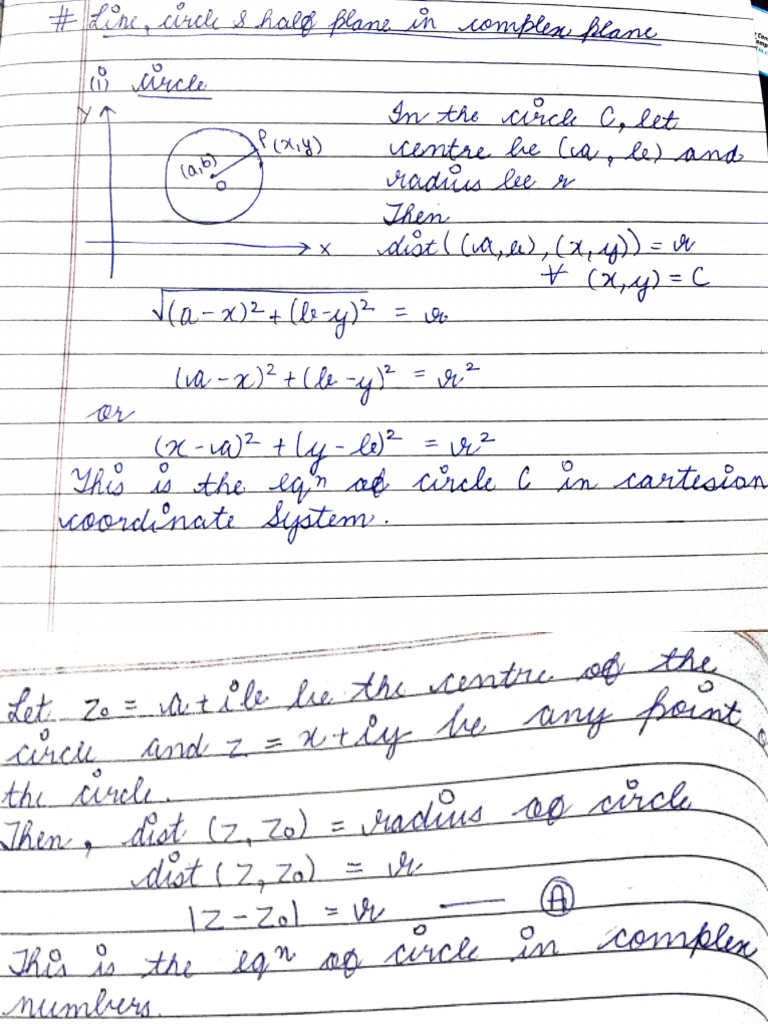 # Line, circle & half plane in complex plane
(i) circle
Y
P(x,y)
(a,b)
O
X
In the circle C, let
centre be (a, b) and
radius be r
Then
dist((a,b),(x,y)) = r
∀ (x,y) = C
√(a-x)² + (b-y)² = r
(a-x)² + (b-y)² = r²
or
(x-a)² + (y-b)² = r²
This is the eqⁿ of circle C in cartesian
coordinate System.
Let z₀ = a+ib be the centre of the
circle and z = x+iy be any point
the circle.
Then, dist (z, z₀) = radius of circle
dist (z, z₀) = r
|z-z₀| = r — Ⓐ
This is the eqⁿ of circle in complex
numbers.